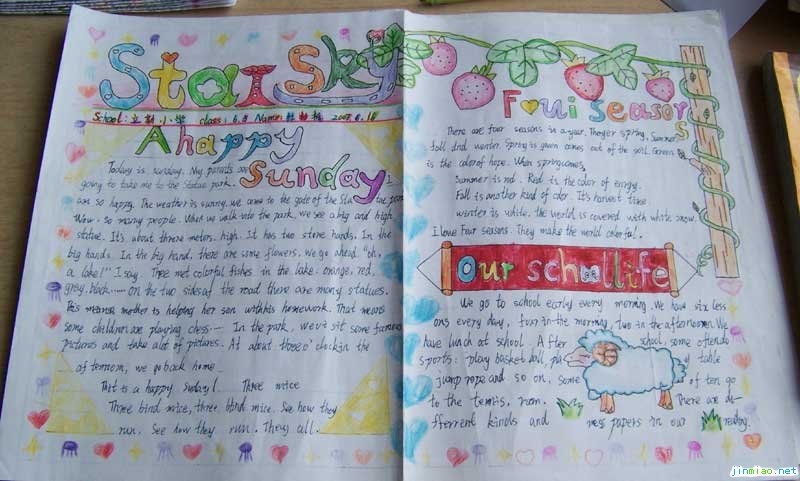 Star Sky
School: 小学 class: 6.8 Name: 2007.6.18
A happy
sunday
Today is sunday. My parents are
going to take me to the statue park. I
am so happy. The weather is sunny. we come to the gate of the Statue park
Wow, so many people. When we walk into the park, we see a big and high
statue. It's about threne meters. high. It has two stone hands. In the
big hands. In the big hand, there are some flowers. we go ahead. "oh,
a lake!" I say. Three met colorful fishes in the lake. orange, red,
grey, black...... On the two sides of the road there are many statues.
This means mother is helping her son with his homework. That means
some children are playing chess...... In the park, we visit some famous
pictures and take alot of pictures. At about three o'clock in the
afternoon, we go back home
That is a happy sunday! Three mice
Three blind mice, three blind mice. See how they
run. See how they run. They all.
Foui seasors
There are four seasons in a year. They er spring, Summer
fall and winter. Spring is green comes out of the soil. Greens
is the color of hope. When spring comes,
Summer is red. Red is the color of energy.
Fall is another kind of color. It's harvest time.
winter is white. the world is covered with white snow.
I love Four seasons. They make the world colorful.
Our schoollife
We go to school early every morning. We have six less
ons every day, four in the morning, Two in the afternoon. We
have lunch at school. After school, some often do
sports: play basketball, play table
jump rope and so on, some often go
to the tennis, room. There are di-
fferrent kinds and papers in our reading.
jinmiao.net